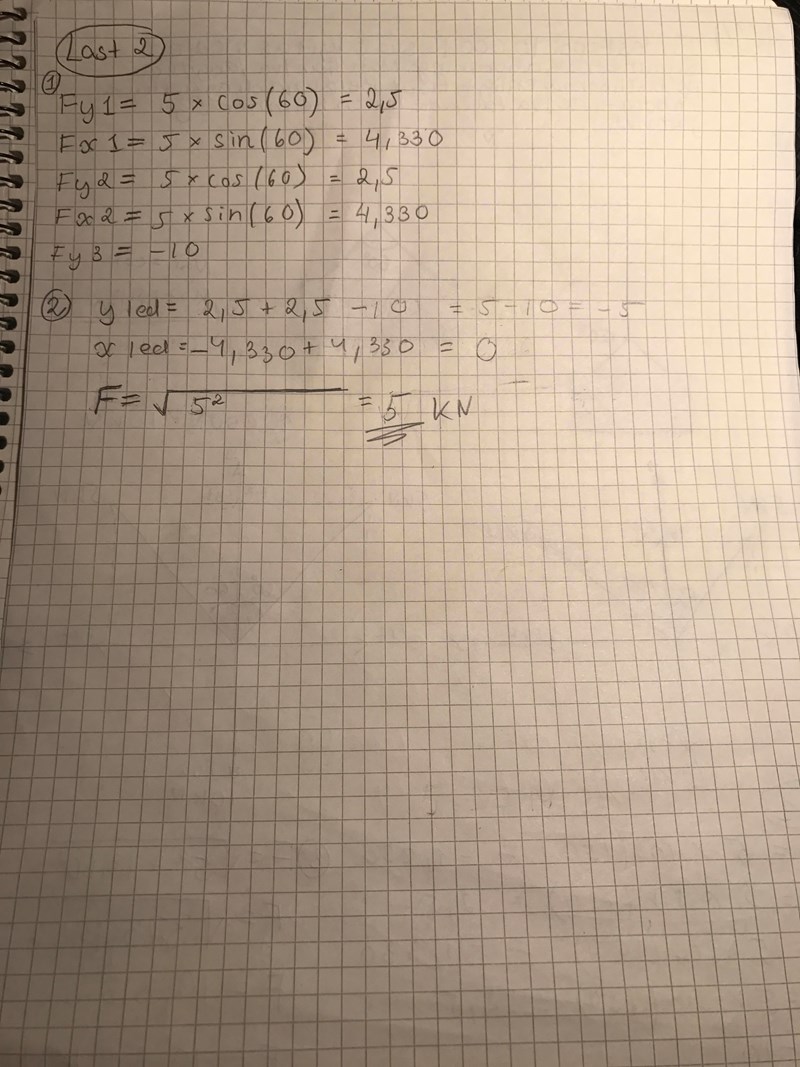 Last 2
①
Fy1 = 5 × cos(60) = 2,5
Fx1 = 5 × sin(60) = 4,330
Fy2 = 5 × cos(60) = 2,5
Fx2 = 5 × sin(60) = 4,330
Fy3 = -10
② y led = 2,5 + 2,5 - 10 = 5 - 10 = -5
x led = -4,330 + 4,330 = 0
F = √5² = 5 KN